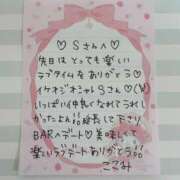 ♡Sさんへ♡
先日はとっても楽しい
ラブタイムをありがとう♡
イケオジオシャレSさん♡
いっぱい仲良くなれてうれし
かったよ 延長して下さり
BARへデート♡美味しくて
楽しいラブデートありがとう
ここみ